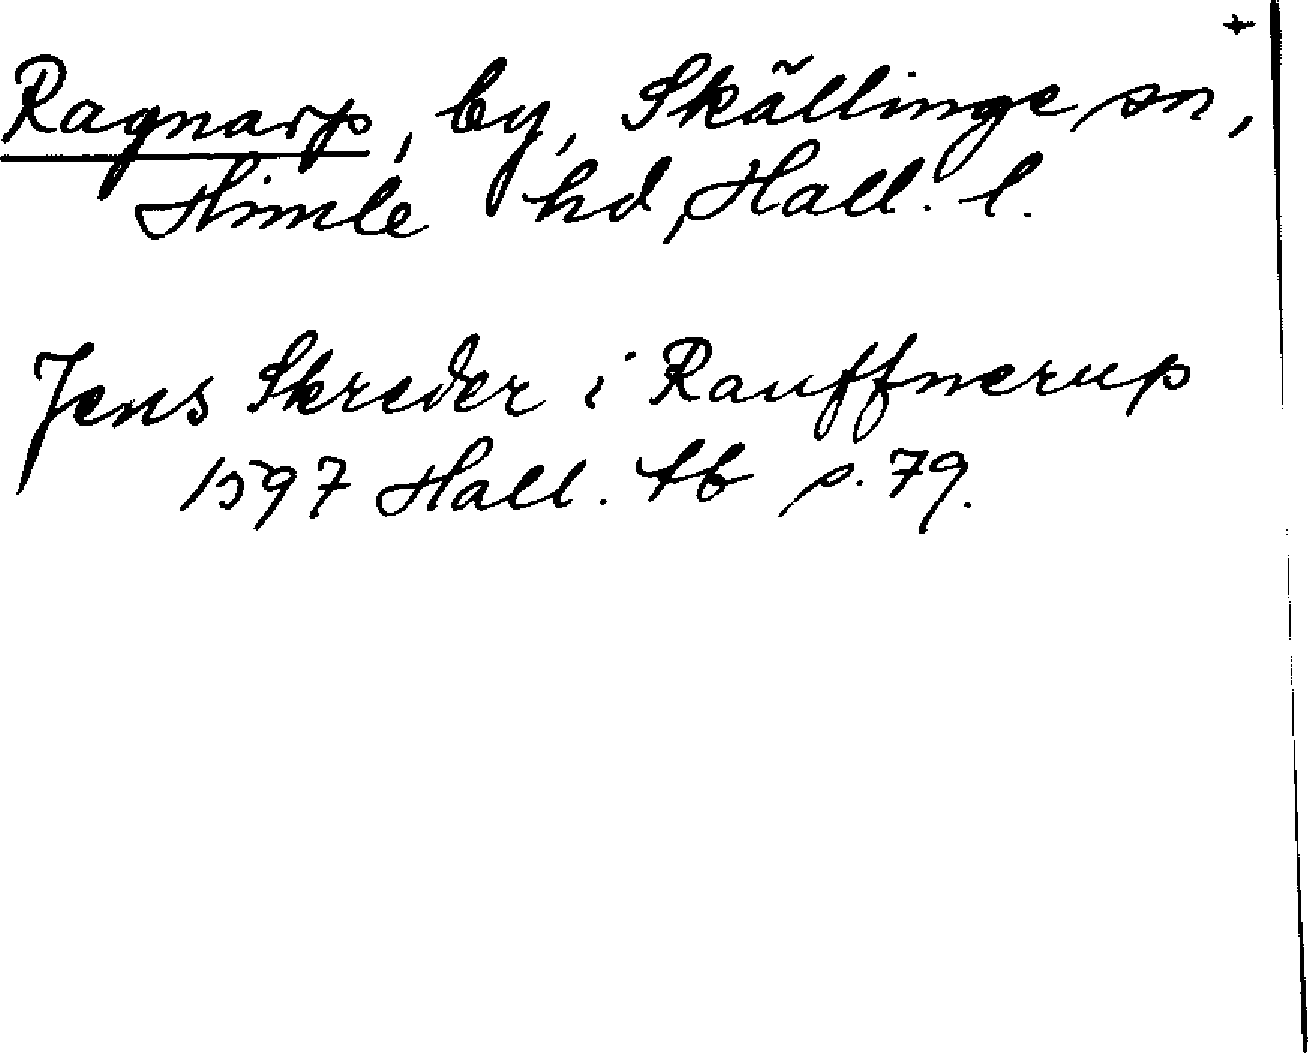 +
Ragnarp, by, Skällinge sn,
Himle hd, Hall. l.
Jens Skreder i Rauffnerup
1597 Hall. tb s. 79.